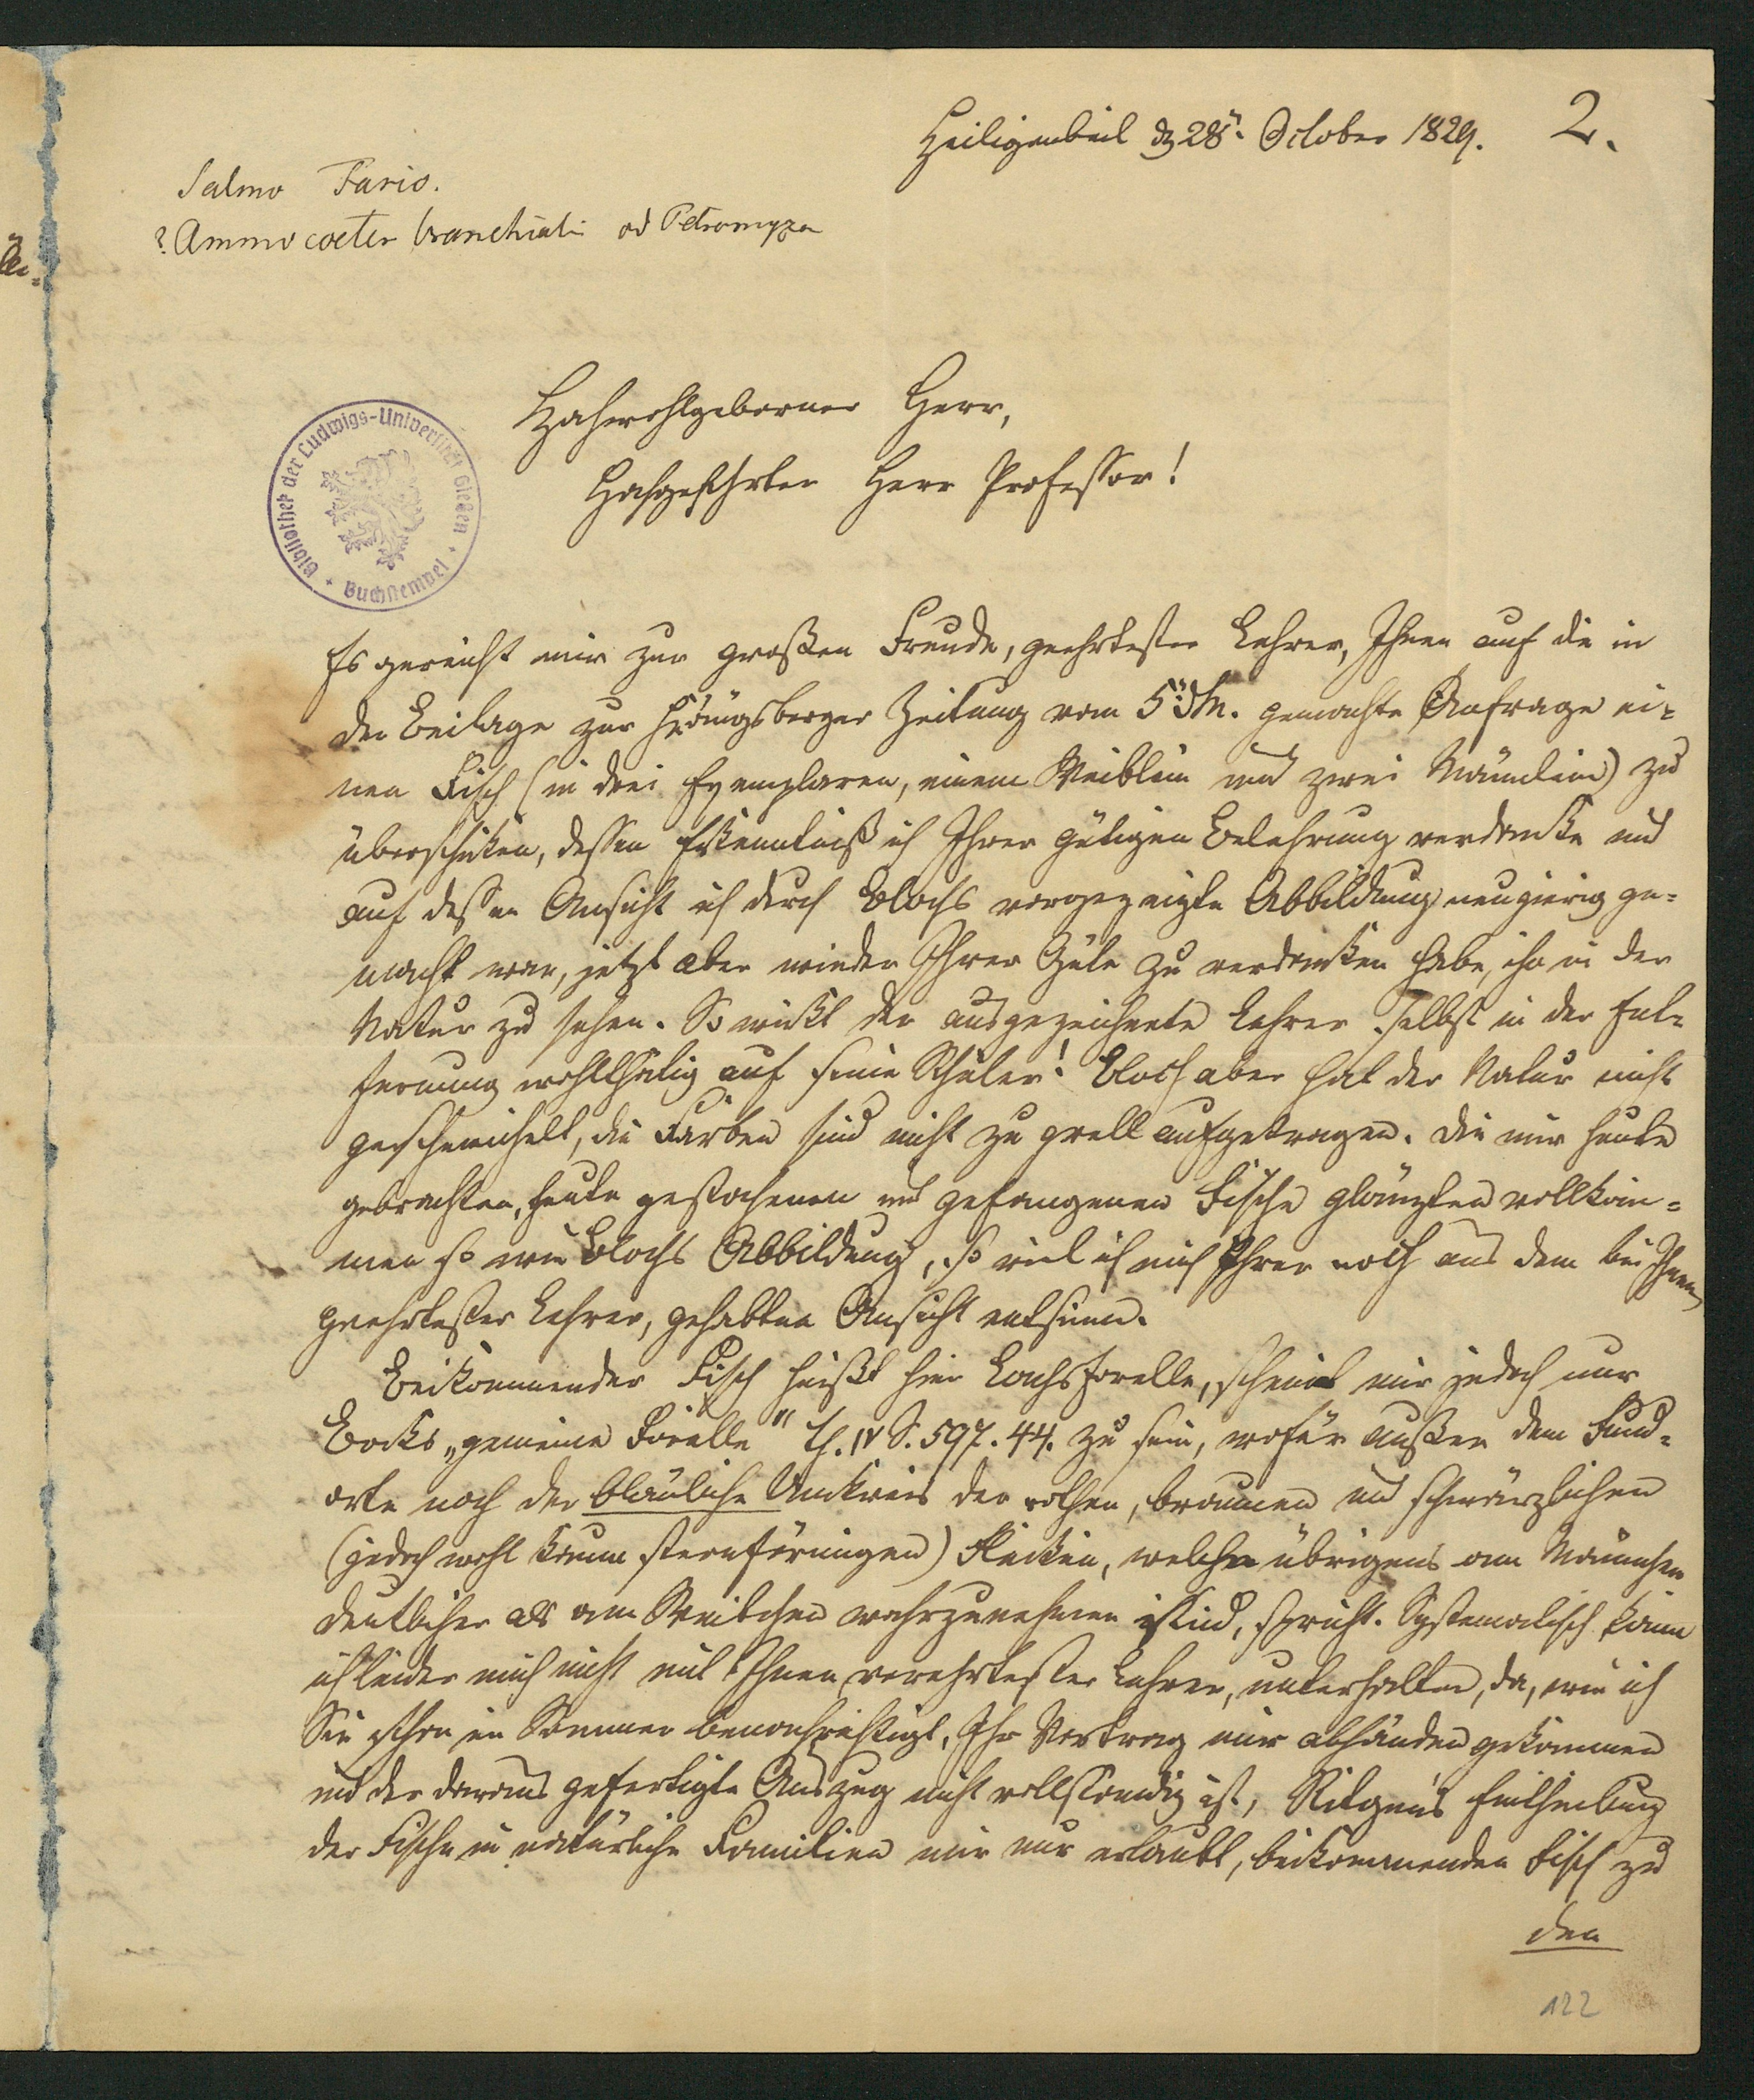 Heiligenbeil d 28n. October 1829. 2.
Salmo Fario.
? Ammocoetes branchialis od Petromyzon
Hochwohlgeborner Herr,
Hochgeehrter Herr Professor!
Bibliothek der Ludwigs-Universität Gießen
Buchstempel
Es gereicht mir zur großen Freude, geehrtester Lehrer, Ihnen auf die in
der Beilage zur Königsberger Zeitung vom 5n d M. gemachte Anfrage ei-
nen Fisch (in drei Exemplaren, einem Weiblein und zwei Männlein) zu
überschicken, dessen Erkenntniß ich Ihrer gütigen Belehrung verdanke und
auf dessen Ansicht ich durch Blochs vorgezeigte Abbildung neugierig ge-
macht war, jetzt aber wieder Ihrer Güte zu verdanken habe, ihn in der
Natur zu sehen. So wirkt der ausgezeichnete Lehrer selbst in der Ent-
fernung wohlthätig auf seine Schüler! Bloch aber hat der Natur nicht
geschmeichelt, die Farben sind nicht zu grell aufgetragen. Die mir heute
gebrachten, heute gestochenen und gefangenen Fische glänzten vollkom-
men so wie Blochs Abbildung, so viel ich mich Ihrer noch aus dem bei Ihnen
geehrtester Lehrer, gehabten Ansicht entsinne.
Beikommender Fisch heißt hier Lachsforelle, scheint mir jedoch nur
Bocks „gemeine Forelle" Th. IV S. 597. 44. zu sein, wofür außer dem Fund-
orte noch der bläuliche Umkreis der rothen, braunen und schwärzlichen
(jedoch wohl kaum sternförmigen) Flecken, welche übrigens am Männchen
deutlicher als am Weibchen wahrzunehmen sind, spricht. Systematisch kann
ich leider mich nicht mit Ihnen verehrtester Lehrer, unterhalten, da, wie ich
Sie schon im Sommer benachrichtigt, Ihr Vortrag mir abhänden gekommen
und der daraus gefertigte Auszug nicht vollständig ist, Ritgen's Eintheilung
der Fische in natürliche Familien mir nur erlaubt, beikommenden Fisch zu
den
122